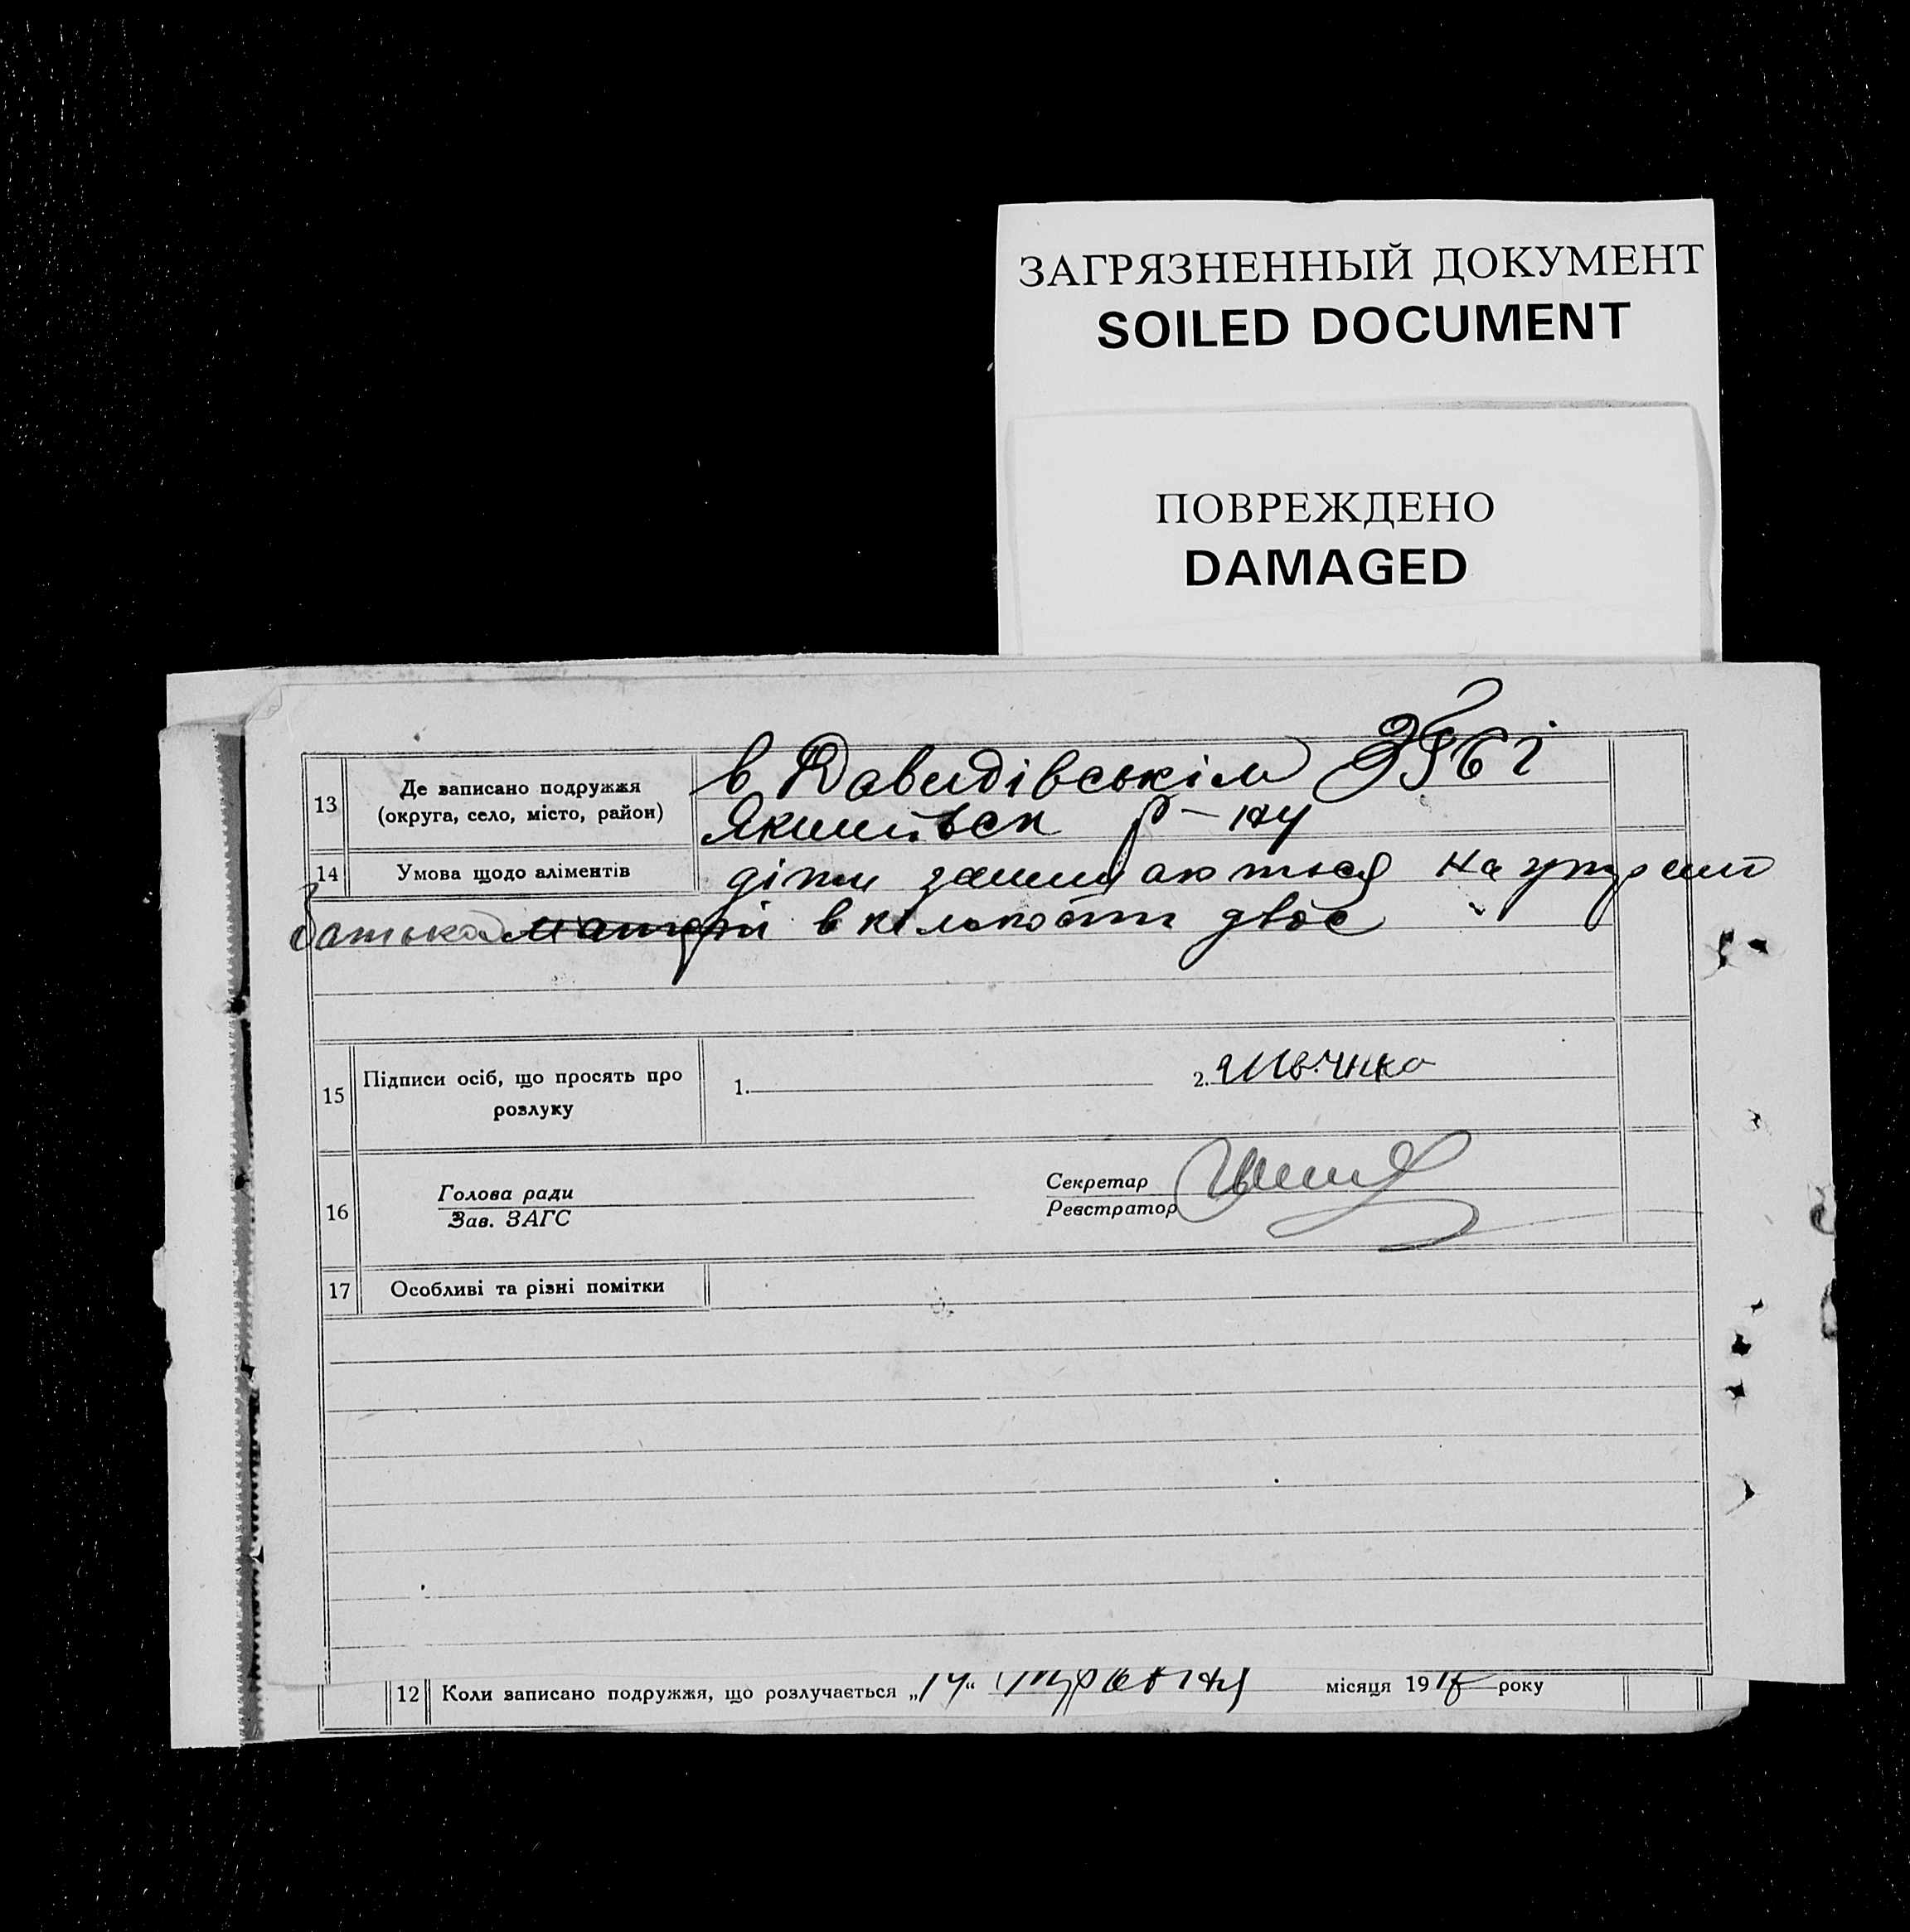 ЗАГРЯЗНЕННЫЙ ДОКУМЕНТ
SOILED DOCUMENT
ПОВРЕЖДЕНО
DAMAGED
13 Де записано подружжя
(округа, село, місто, район)
в Давидівськім
Якимівськ р-ну
14 Умова щодо аліментів
діти залишаються на
батька матері в кількости двоє
15 Підписи осіб, що просять про
розлуку
1. 2.
16 Голова ради
Зав. ЗАГС
Секретар
Реєстратор
17 Особливі та різні помітки
12 Коли записано подружжя, що розлучається „14“ травня місяця 19 року